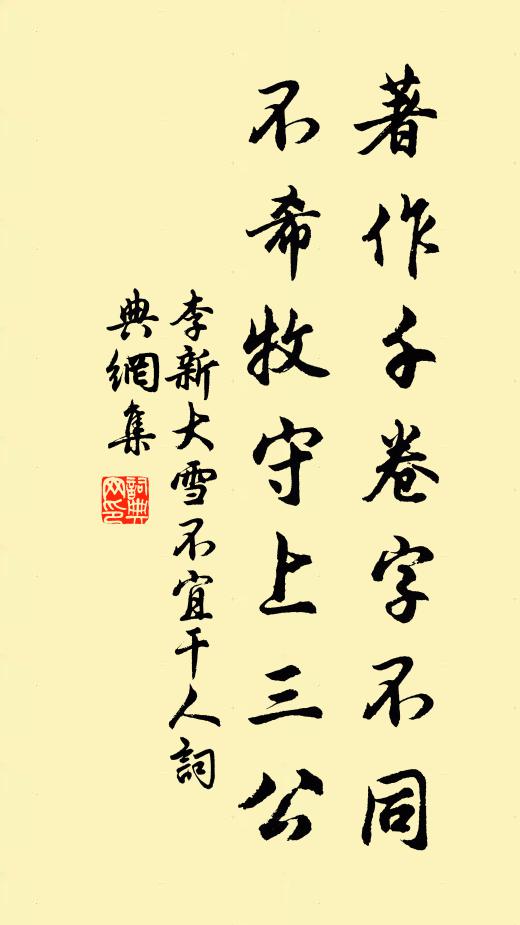 著作千卷字不同
不希牧守上三公
李新大雪不宜干人詞
典網集
詞典网印